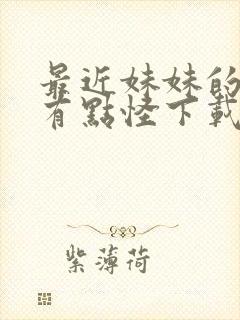 最近妹妹的
有點怪下載
紫薄荷